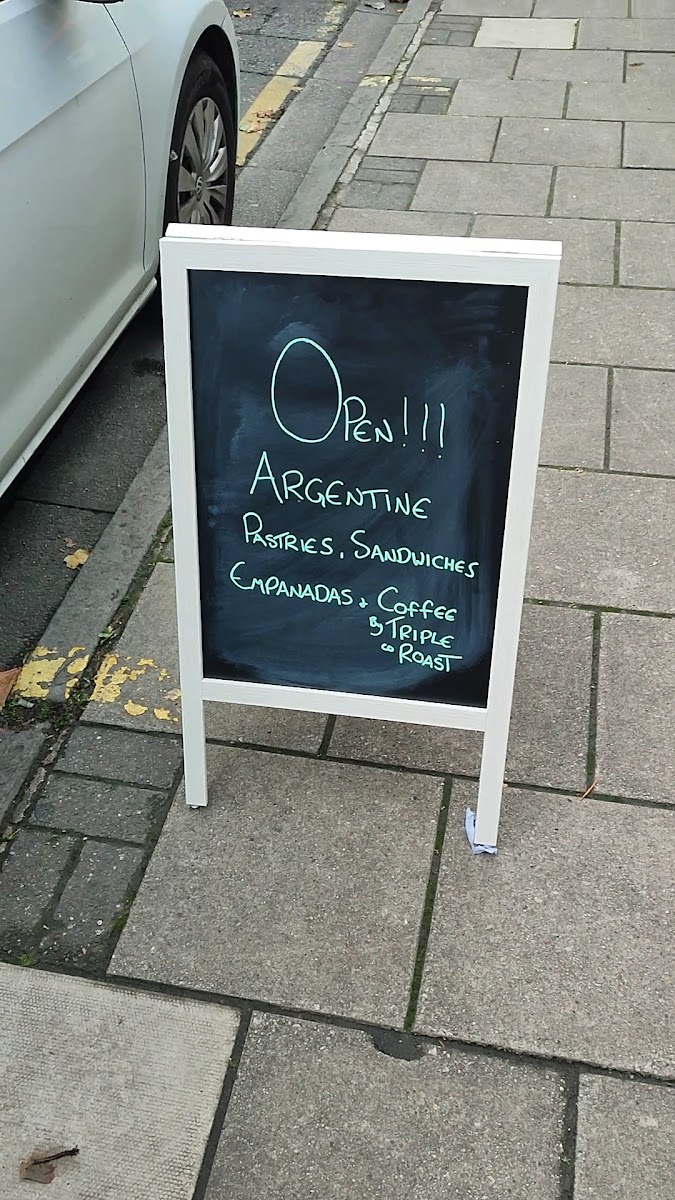 OPEN!!!
ARGENTINE
PASTRIES, SANDWICHES
EMPANADAS & COFFEE
By TRIPLE
co ROAST